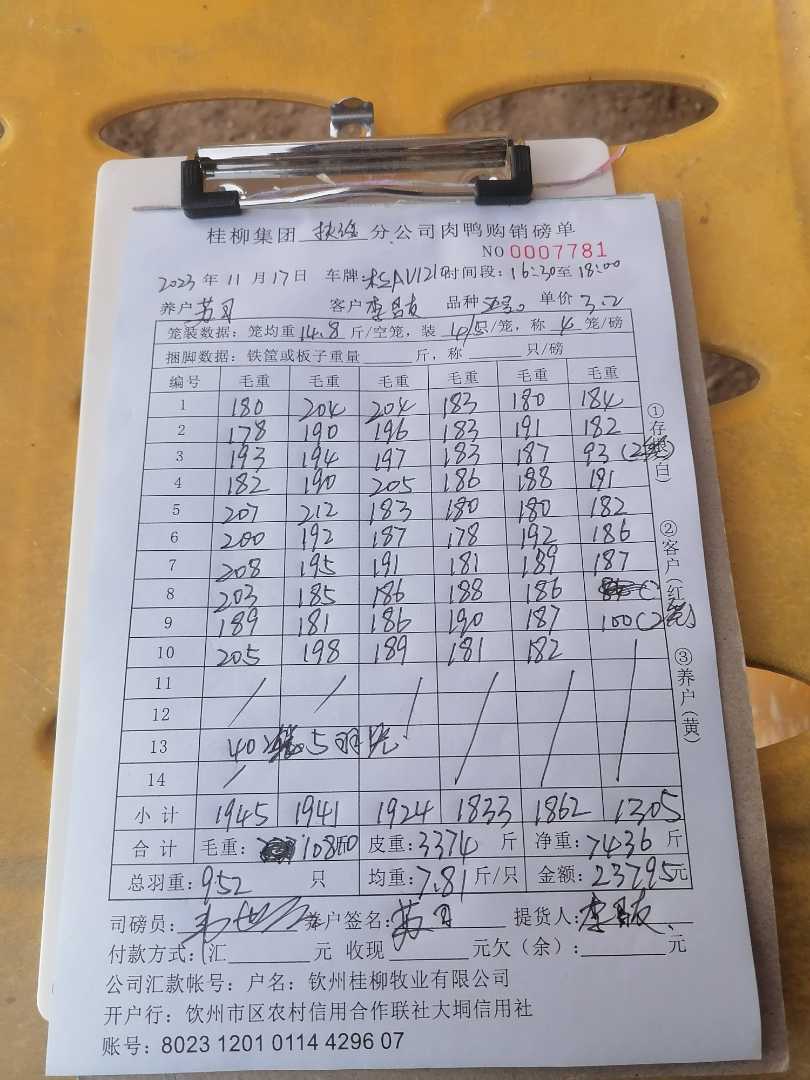 桂柳集团 扶绥 分公司肉鸭购销磅单
NO 0007781
2023年11月17日 车牌: 时间段: 16:30至18:00
养户 苏 客户 李昌友 品种 单价 3.2
笼装数据: 笼均重 14.8 斤/空笼, 装 4/5只/笼, 称 4 笼/磅
捆脚数据: 铁筐或板子重量 斤, 称 只/磅
编号 毛重 毛重 毛重 毛重 毛重 毛重
1 180 204 204 183 180 184
2 178 190 196 183 191 182
3 193 194 197 183 187 93(2笼)
4 182 190 205 186 188 191
5 207 212 183 180 180 182
6 200 192 187 178 192 186
7 208 195 191 181 189 187
8 203 185 186 188 186
9 189 181 186 190 187 100(2笼)
10 205 198 189 181 182
11
12
13 40笼5羽
14
小计 1945 1941 1924 1833 1862 1305
合计 毛重: 10810 皮重: 3374 斤 净重: 7436 斤
总羽重: 952 只 均重: 7.81 斤/只 金额: 23795元
司磅员: 养户签名: 苏 提货人: 李昌友
付款方式: 汇 元 收现 元欠(余): 元
公司汇款帐号: 户名: 钦州桂柳牧业有限公司
开户行: 钦州市区农村信用合作联社大垌信用社
账号: 8023 1201 0114 4296 07
①存根(白)
②客户(红)
③养户(黄)